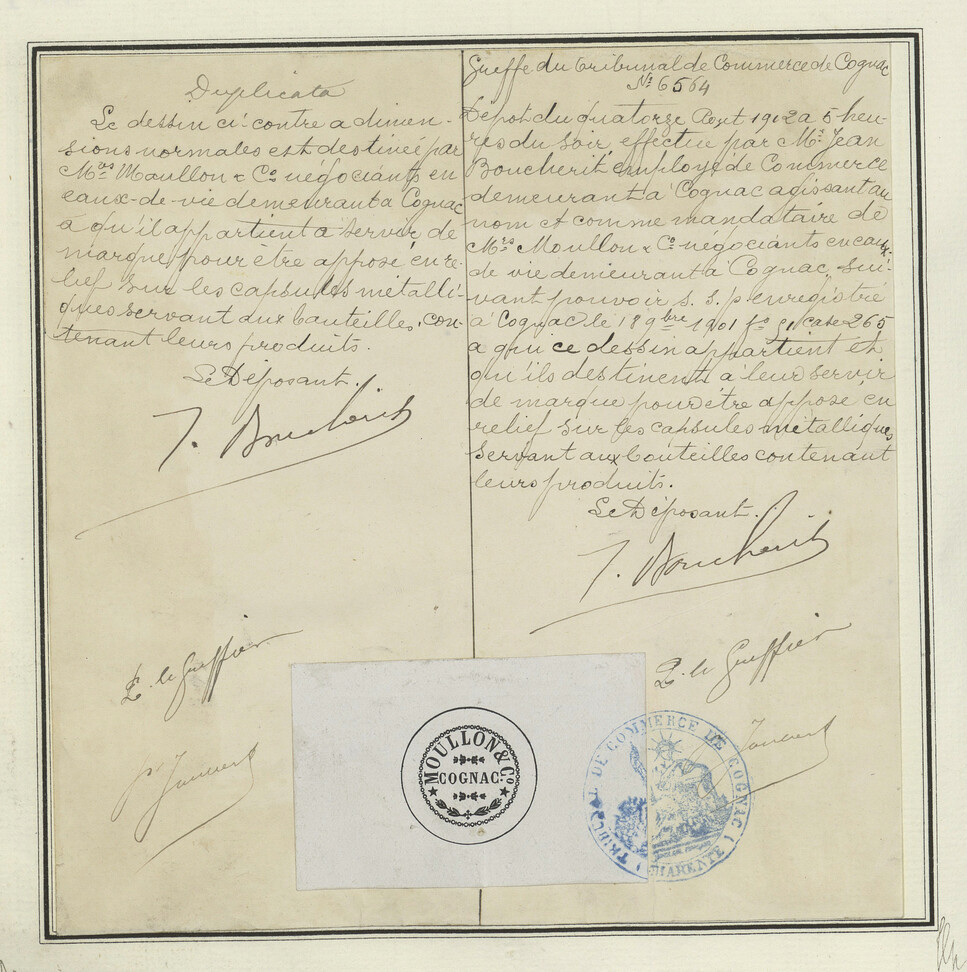 Duplicata
Le dessin ci-contre a dimen-
sions normales est destinée par
Mrs Moullon & Co négociants en
eaux-de-vie demeurant à Cognac
à qu'il appartient à servir de
marque pour être apposé en re-
lief sur les capsules métalli-
ques servant aux bouteilles con-
tenant leurs produits.
Le Déposant.
J. Boucherit
P. le Greffier
Greffe du tribunal de Commerce de Cognac
No 6564
Dépot du quatorze 1902 à 5 heu-
res du soir, effectué par Mr. Jean
Boucherit employé de Commerce
demeurant à Cognac agissant au
nom et comme mandataire de
Mrs Moullon & Co négociants en eaux-
de vie demeurant à Cognac, sui-
vant pouvoir s. s. p. enregistré
à Cognac le 18 9bre 1901 fo 91 case 265
a qui ce dessin appartient et
qu'ils destinent à leur servir
de marque pour être apposé en
relief sur les capsules métalliques
servant aux bouteilles contenant
leurs produits.
Le Déposant.
J. Boucherit
P. le Greffier
MOULLON & Co.
COGNAC.
TRIBUNAL DE COMMERCE DE COGNAC
(CHARENTE)